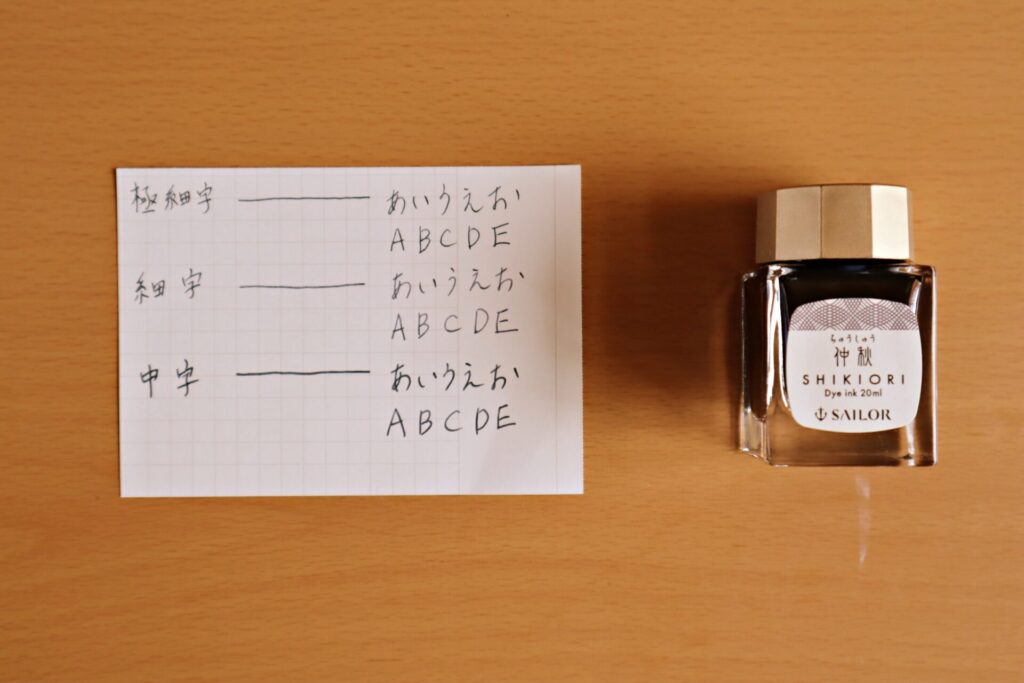 極細字 あいうえお
ABCDE
細字 あいうえお
ABCDE
中字 あいうえお
ABCDE
ちゅうしゅう
仲秋
SHIKIORI
Dye ink 20ml
SAILOR